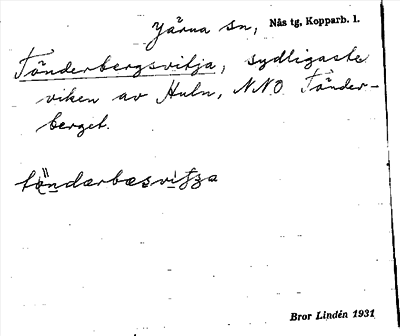 Järna sn, Nås tg, Kopparb. l.
Tönderbergsvikja, sydligaste
viken av Huln, NNO Tönder-
berget.
Bror Lindén 1931